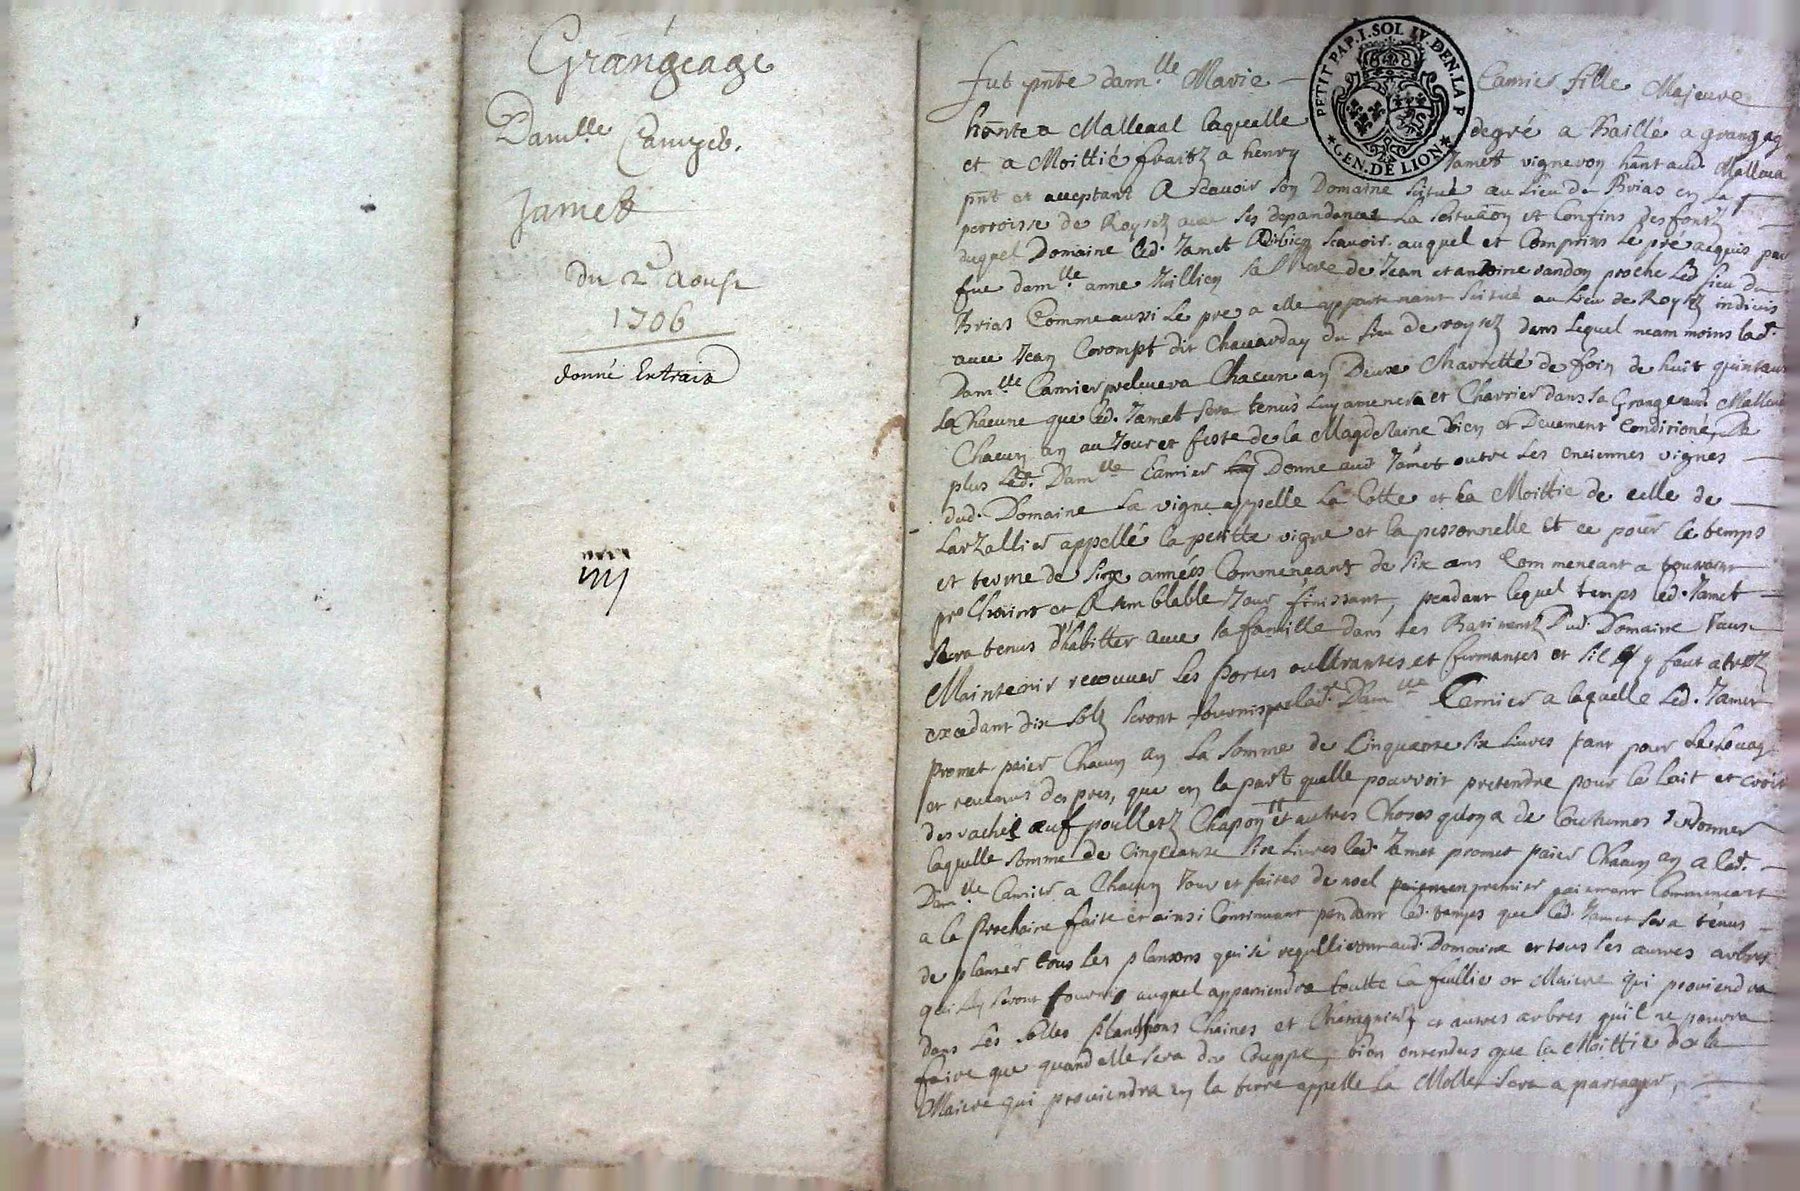 Grangeage
Dam.lle Camier.
Jamet
Du 2e Aoust
1706
donné Extrait
iiij
PETIT PAP. I. SOL IV. DEN. LA F
GEN. DE LION
fut pnte dam.lle Marie Camier fille Majeure
hânte a Malleual laquelle degré a baillé a grangag
et a Moittié fruitz a henry Jamet vigneron hânt aud. Malleua
pnt et acceptant A scauoir son Domaine scitué au lieu du Brias en la
perroisse de Roysez auec ses dependances La scituaôn et Confins desfontz
duquel Domaine led. Jamet scauoir auquel et Comprins le pré acquis par
fue dam.lle anne Jullien de Jean et antoine randon proche led lieu du
Brias Comme aussi le pre a elle appartenant scitué au lieu de Roysez indiuis
auec Jean Corompt dit Chauarday du lieu de roysez dans lequel neammoins lad.
Dam.lle Camier preleuera Chacun an Deux Charrettés de foin de huit quintaux
la Chacune que led. Jamet sera tenus luy amener et Charrier dans sa Grange aud. Malleual
Chacun an au Jour et feste de la Magdelaine bien et Deuement Conditioné, De
plus lad. Dam.lle Camier Donne aud Jamet outre les enciennes vignes
dud. Domaine La vigne appellé La Cotte et la Moittié de celle de
Larzallier appellé la petitte vigne et la pessonnelle et ce pour le temps
et terme de six années Commenceants de six ans Commencant a toussaint
pr Chaint et A semblable Jour finissant, pendant lequel temps led. Jamet
sera tenus d'habitter auec sa famille dans les Batiments Dud. Domaine
Maintenir recouuer les portes ouurantes et fermantes et sil y faut
excedant dix solz seront fournis par lad. Dam.lle Camier a laquelle led. Jamet
promet paier Chacun an La somme de Cinquante six Liures tant pour le louage
et reuenus des pres, que en la part quelle pouuroit pretendre pour le lait et croit
des vaches œuf poulletz Chapons et autres Choses quon a de Couttumes de donner
laquelle somme de Cinquante six Liures led. Jamet promet paier Chacun an a lad.
Dam.lle Camier a Chacun Jour et faites de noel premier paiement Commencant
a la prochaine faite et ainsi Continuant pendant led. temps que led. Jamet sera tenus
de planter tous les plansons qui se aud. Domaine et tous les autres arbres
qui luy seront fournis auquel appartiendra toutte la feullie et Maiere qui prouiendra
dans les plantions Chaines et et autres arbres qu'il ne pouura
faire que quand elle sera de Couppe, bien entendus que la Moittié de la
Maiere qui prouiendra en la terre appellé la Molle sera a partager,